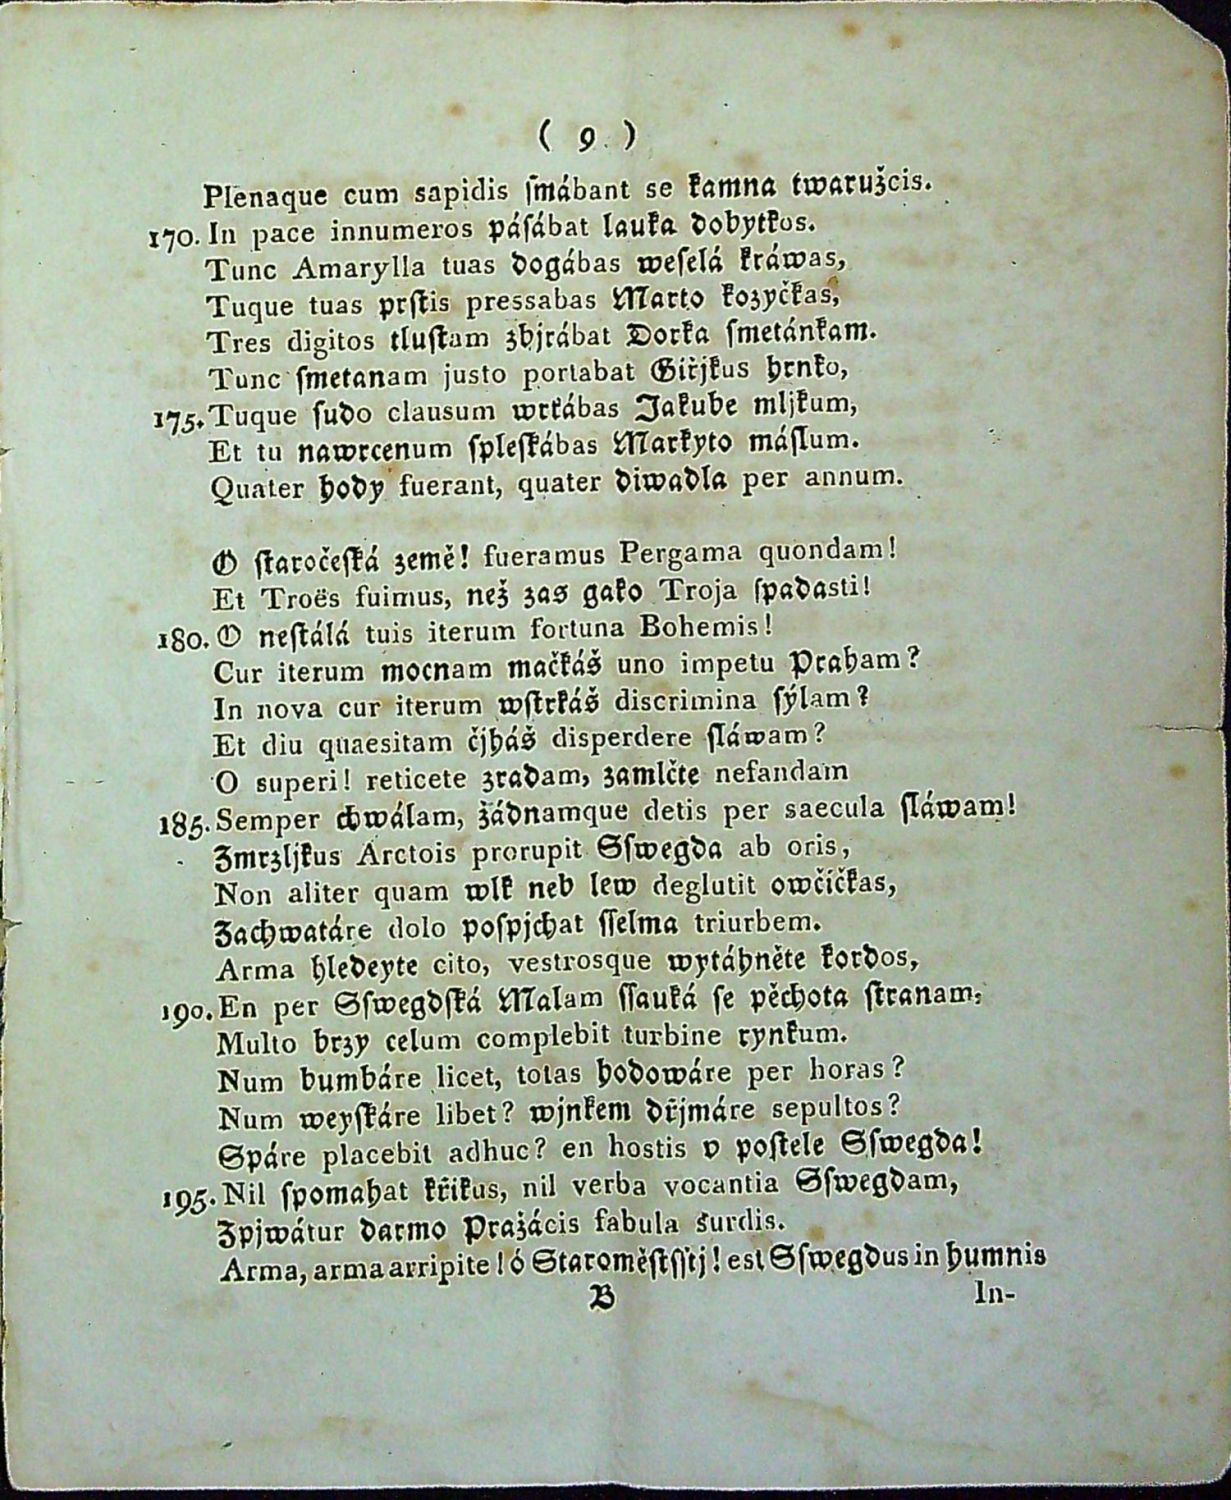 ( 9 )
Plenaque cum sapidis ſmábant se kamna twaružcis.
170. In pace innumeros páſábat lauka dobytkos.
Tunc Amarylla tuas dogábas weſelá kráwas,
Tuque tuas prſtis pressabas Marto kozyčkas,
Tres digitos tluſtam zbjrábat Dorka ſmetánkam.
Tunc ſmetanam justo portabat Giřjkus hrnko,
175. Tuque ſudo clausum wrtábas Jakube mljkum,
Et tu nawrcenum ſpleſkábas Markyto máſlum.
Quater hody fuerant, quater diwadla per annum.
O ſtaročeſká země! fueramus Pergama quondam!
Et Troës fuimus, než zas gako Troja ſpadasti!
180. O neſtálá tuis iterum fortuna Bohemis!
Cur iterum mocnam mačkáš uno impetu Praham?
In nova cur iterum wſtrkáš discrimina ſýlam?
Et diu quaesitam čjháš disperdere ſláwam?
O superi! reticete zradam, zamlčte nefandam
185. Semper chwálam, žádnamque detis per saecula ſláwam!
Zmrzljkus Arctois prorupit Sſwegda ab oris,
Non aliter quam wlk neb lew deglutit owčičkas,
Zachwatáre dolo poſpjchat ſſelma triurbem.
Arma hledeyte cito, vestrosque wytáhněte kordos,
190. En per Sſwegdſká Malam ſſauká ſe pěchota ſtranam,
Multo brzy celum complebit turbine rynkum.
Num bumbáre licet, totas hodowáre per horas?
Num weyſkáre libet? wjnkem dřjmáre sepultos?
Spáre placebit adhuc? en hostis v poſtele Sſwegda!
195. Nil ſpomahat křikus, nil verba vocantia Sſwegdam,
Zpjwátur darmo Pražácis fabula surdis.
Arma, arma arripite! ó Staroměſtſſtj! est Sſwegdus in humnis
B
In-